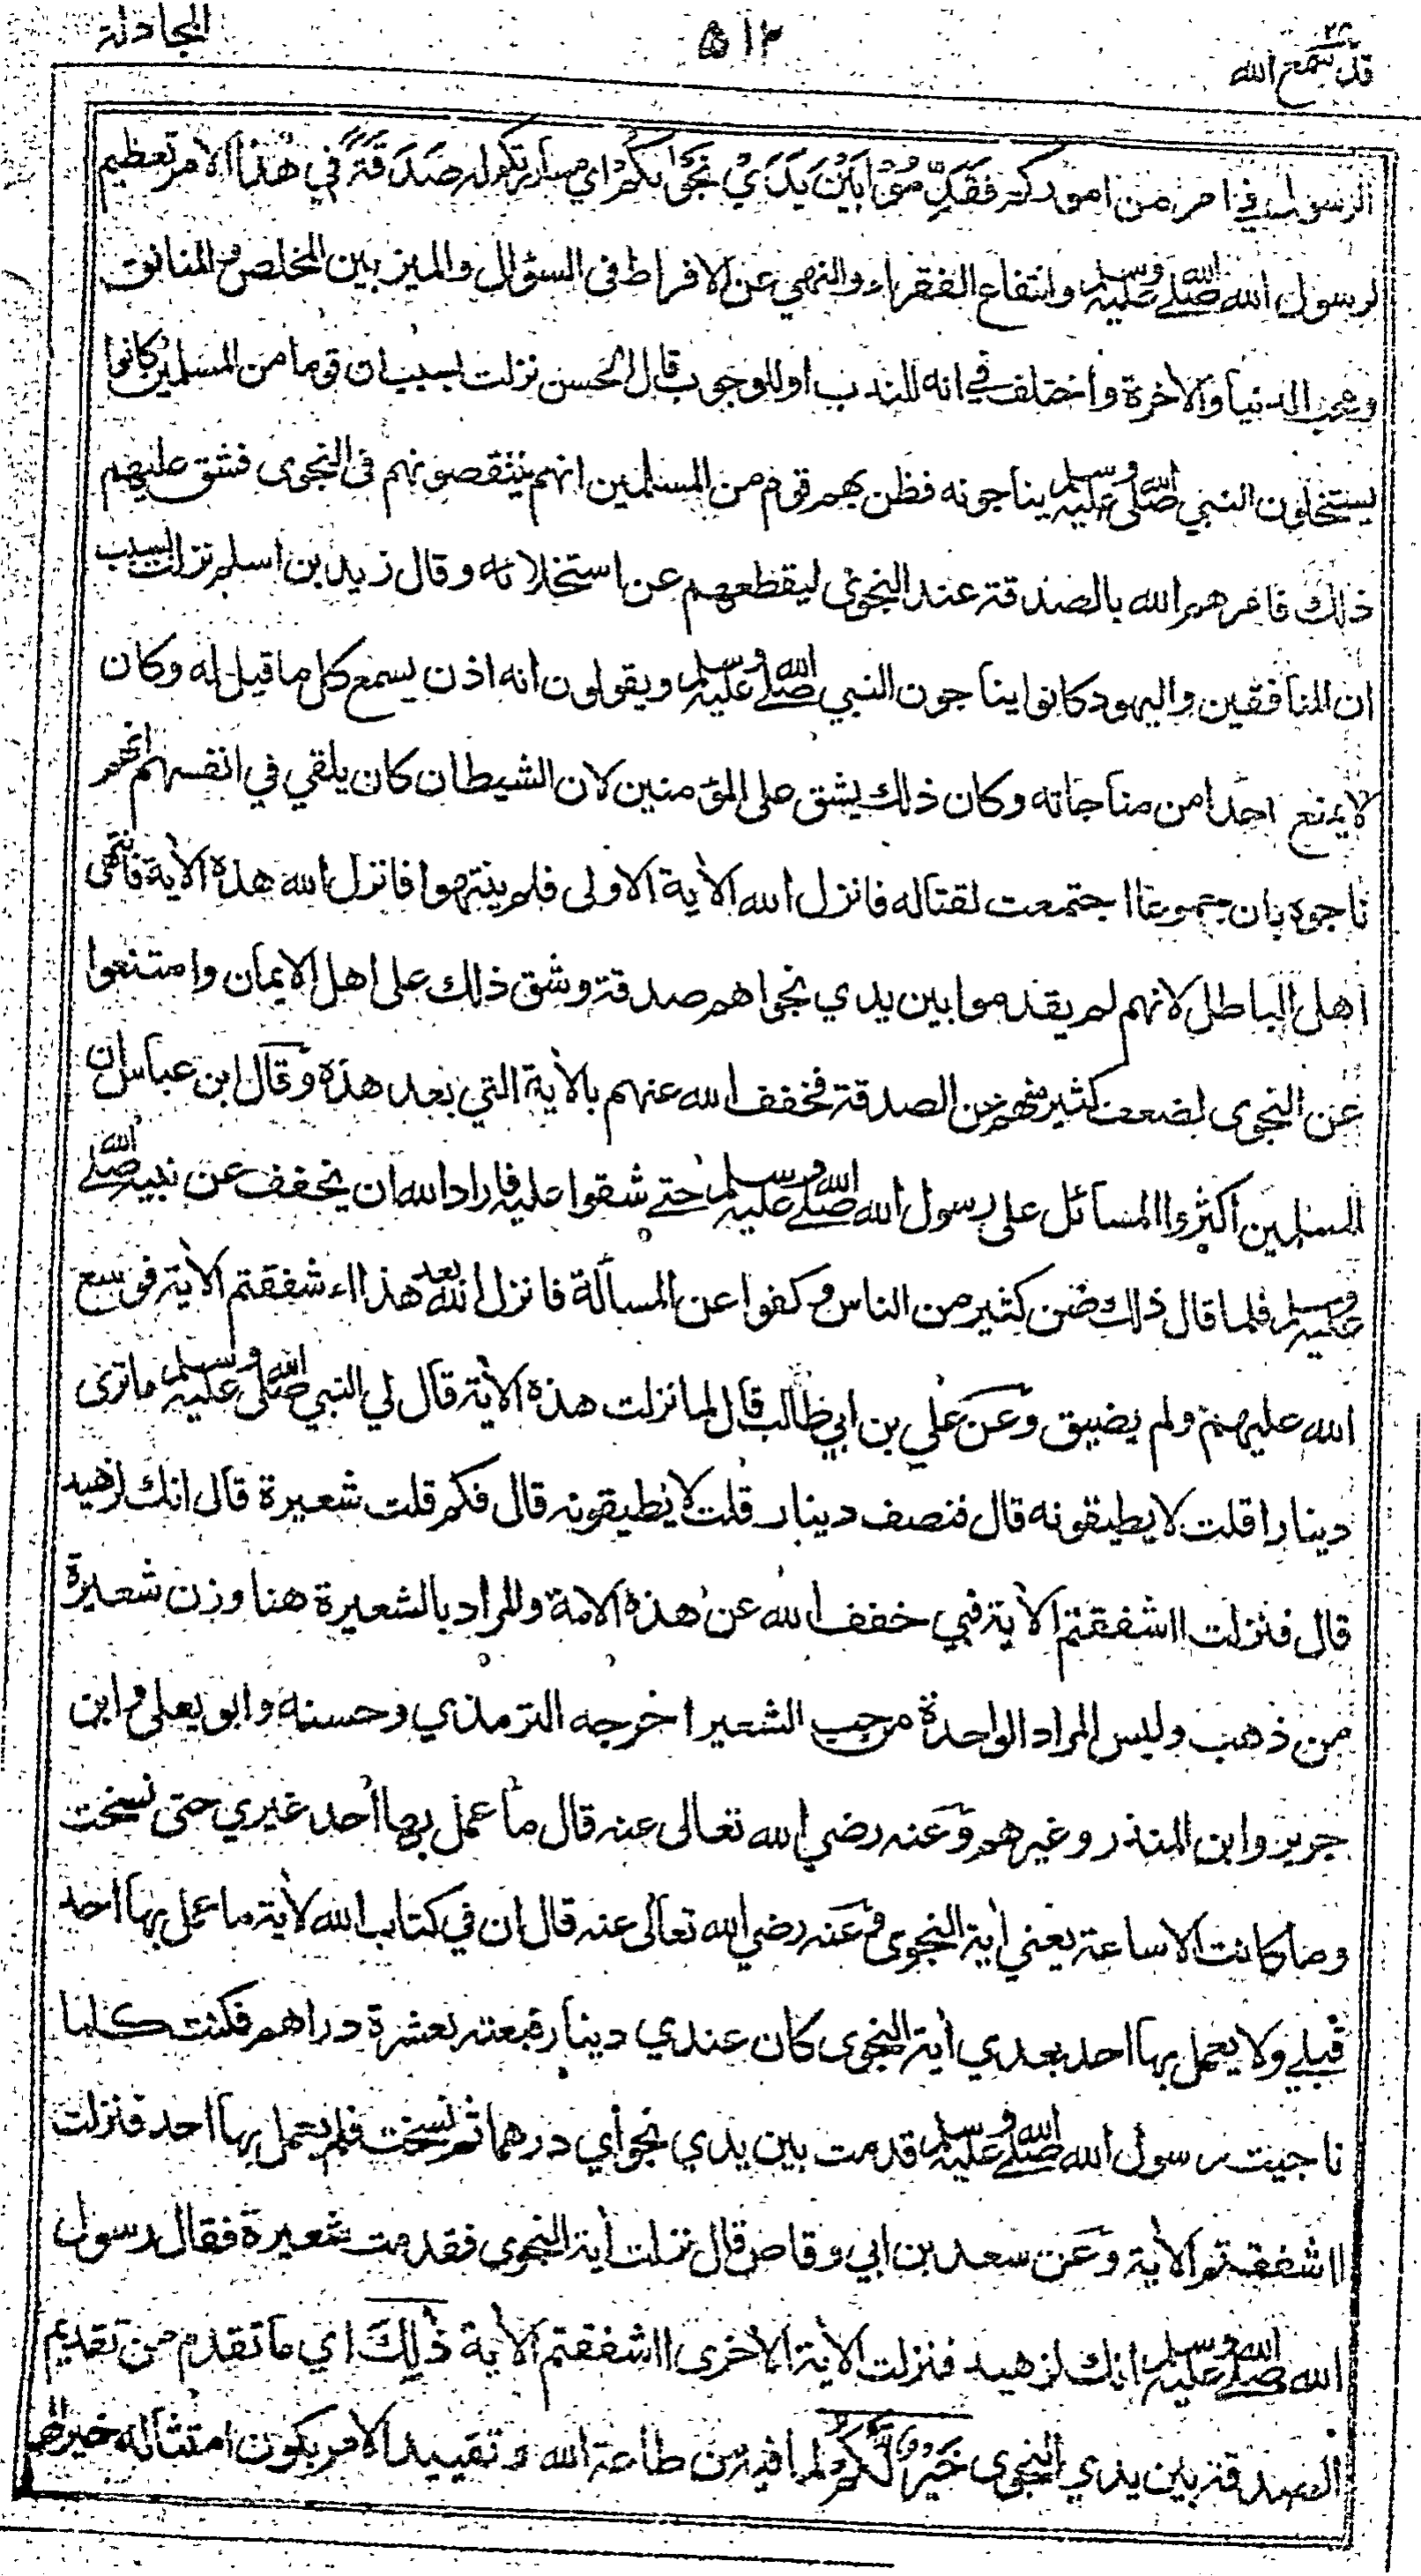 المجادلة
٥١٢
٢٨
قد سمع الله
الرسول في امر من اموركم فَقَدِّمُوْا بَيْنَ يَدَيْ نَجْوَاىكُمْ اي مساررتكم له صَدَقَةً في هذا الامر تعظيم
لرسول الله صلى الله عليه وسلم وانتفاع الفقراء والنهي عن الافراط فى السؤال والميز بين المخلص والمنافق
ومحب الدنيا والاخرة واختلف في انه للندب اوللوجوب قال الحسن نزلت بسبب ان قوما من المسلمين كانوا
يستخلون النبي صلى الله عليه وسلم يناجونه فظن بهم قوم من المسلمين انهم ينتقصونهم فى النجوى فشق عليهم
ذلك فامرهم الله بالصدقة عند النجوى ليقطعهم عن استخلائه وقال زيد بن اسلم نزلت بسبب
ان المنافقين واليهود كانوا يناجون النبي صلى الله عليه وسلم ويقولون انه اذن يسمع كل ما قيل له وكان
لا يمنع احدا من مناجاته وكان ذلك يشق على المؤمنين لان الشيطان كان يلقي في انفسهم انهم
ناجوه بان جموعا اجتمعت لقتاله فانزل الله الأية الاولى فلم ينتهوا فانزل الله هذه الأية فانتهى
اهل الباطل لانهم لم يقدموا بين يدي نجواهم صدقة وشق ذلك على اهل الايمان وامتنعوا
عن النجوى لضعف كثير منهم عن الصدقة فخفف الله عنهم بالأية التي بعد هذه وقال ابن عباس ان
المسلمين اكثروا المسائل على رسول الله صلى الله عليه وسلم حتى شقوا عليه فاراد الله ان يخفف عن نبيه صلى الله
عليه وسلم فلما قال ذلك ضن كثير من الناس وكفوا عن المسألة فانزل الله بعد هذا ااشفقتم الأية فوسع
الله عليهم ولم يضيق وعن علي بن ابي طالب قال لما نزلت هذه الأية قال لي النبي صلى الله عليه وسلم ماترى
دينارا قلت لا يطيقونه قال فنصف دينار قلت لا يطيقونه قال فكم قلت شعيرة قال انك لزهيد
قال فنزلت ااشفقتم الأية فبي خفف الله عن هذه الامة والمراد بالشعيرة هنا وزن شعيرة
من ذهب وليس المراد الواحدة من حب الشعير اخرجه الترمذي وحسنه وابو يعلى وابن
جرير وابن المنذر وغيرهم وعنه رضي الله تعالى عنه قال ما عمل بها احد غيري حتى نسخت
وما كانت الا ساعة يعني أية النجوى وعنه رضي الله تعالى عنه قال ان في كتاب الله لأية ما عمل بها احد
قبلي ولا يعمل بها احد بعدي أية النجوى كان عندي دينار فبعته بعشرة دراهم فكنت كلما
ناجيت رسول الله صلى الله عليه وسلم قدمت بين يدي نجواي درهما ثم نسخت فلم يعمل بها احد فنزلت
ااشفقتم الأية وعن سعد بن ابي وقاص قال نزلت أية النجوى فقدمت شعيرة فقال رسول
الله صلى الله عليه وسلم انك لزهيد فنزلت الأية الاخرى ااشفقتم الأية ذٰلِكَ اي ما تقدم من تقديم
الصدقة بين يدي النجوى خَيْرٌ لَّكُمْ لما فيه من طاعة الله وتقييد الامر بكون امتثاله خيرا لهم